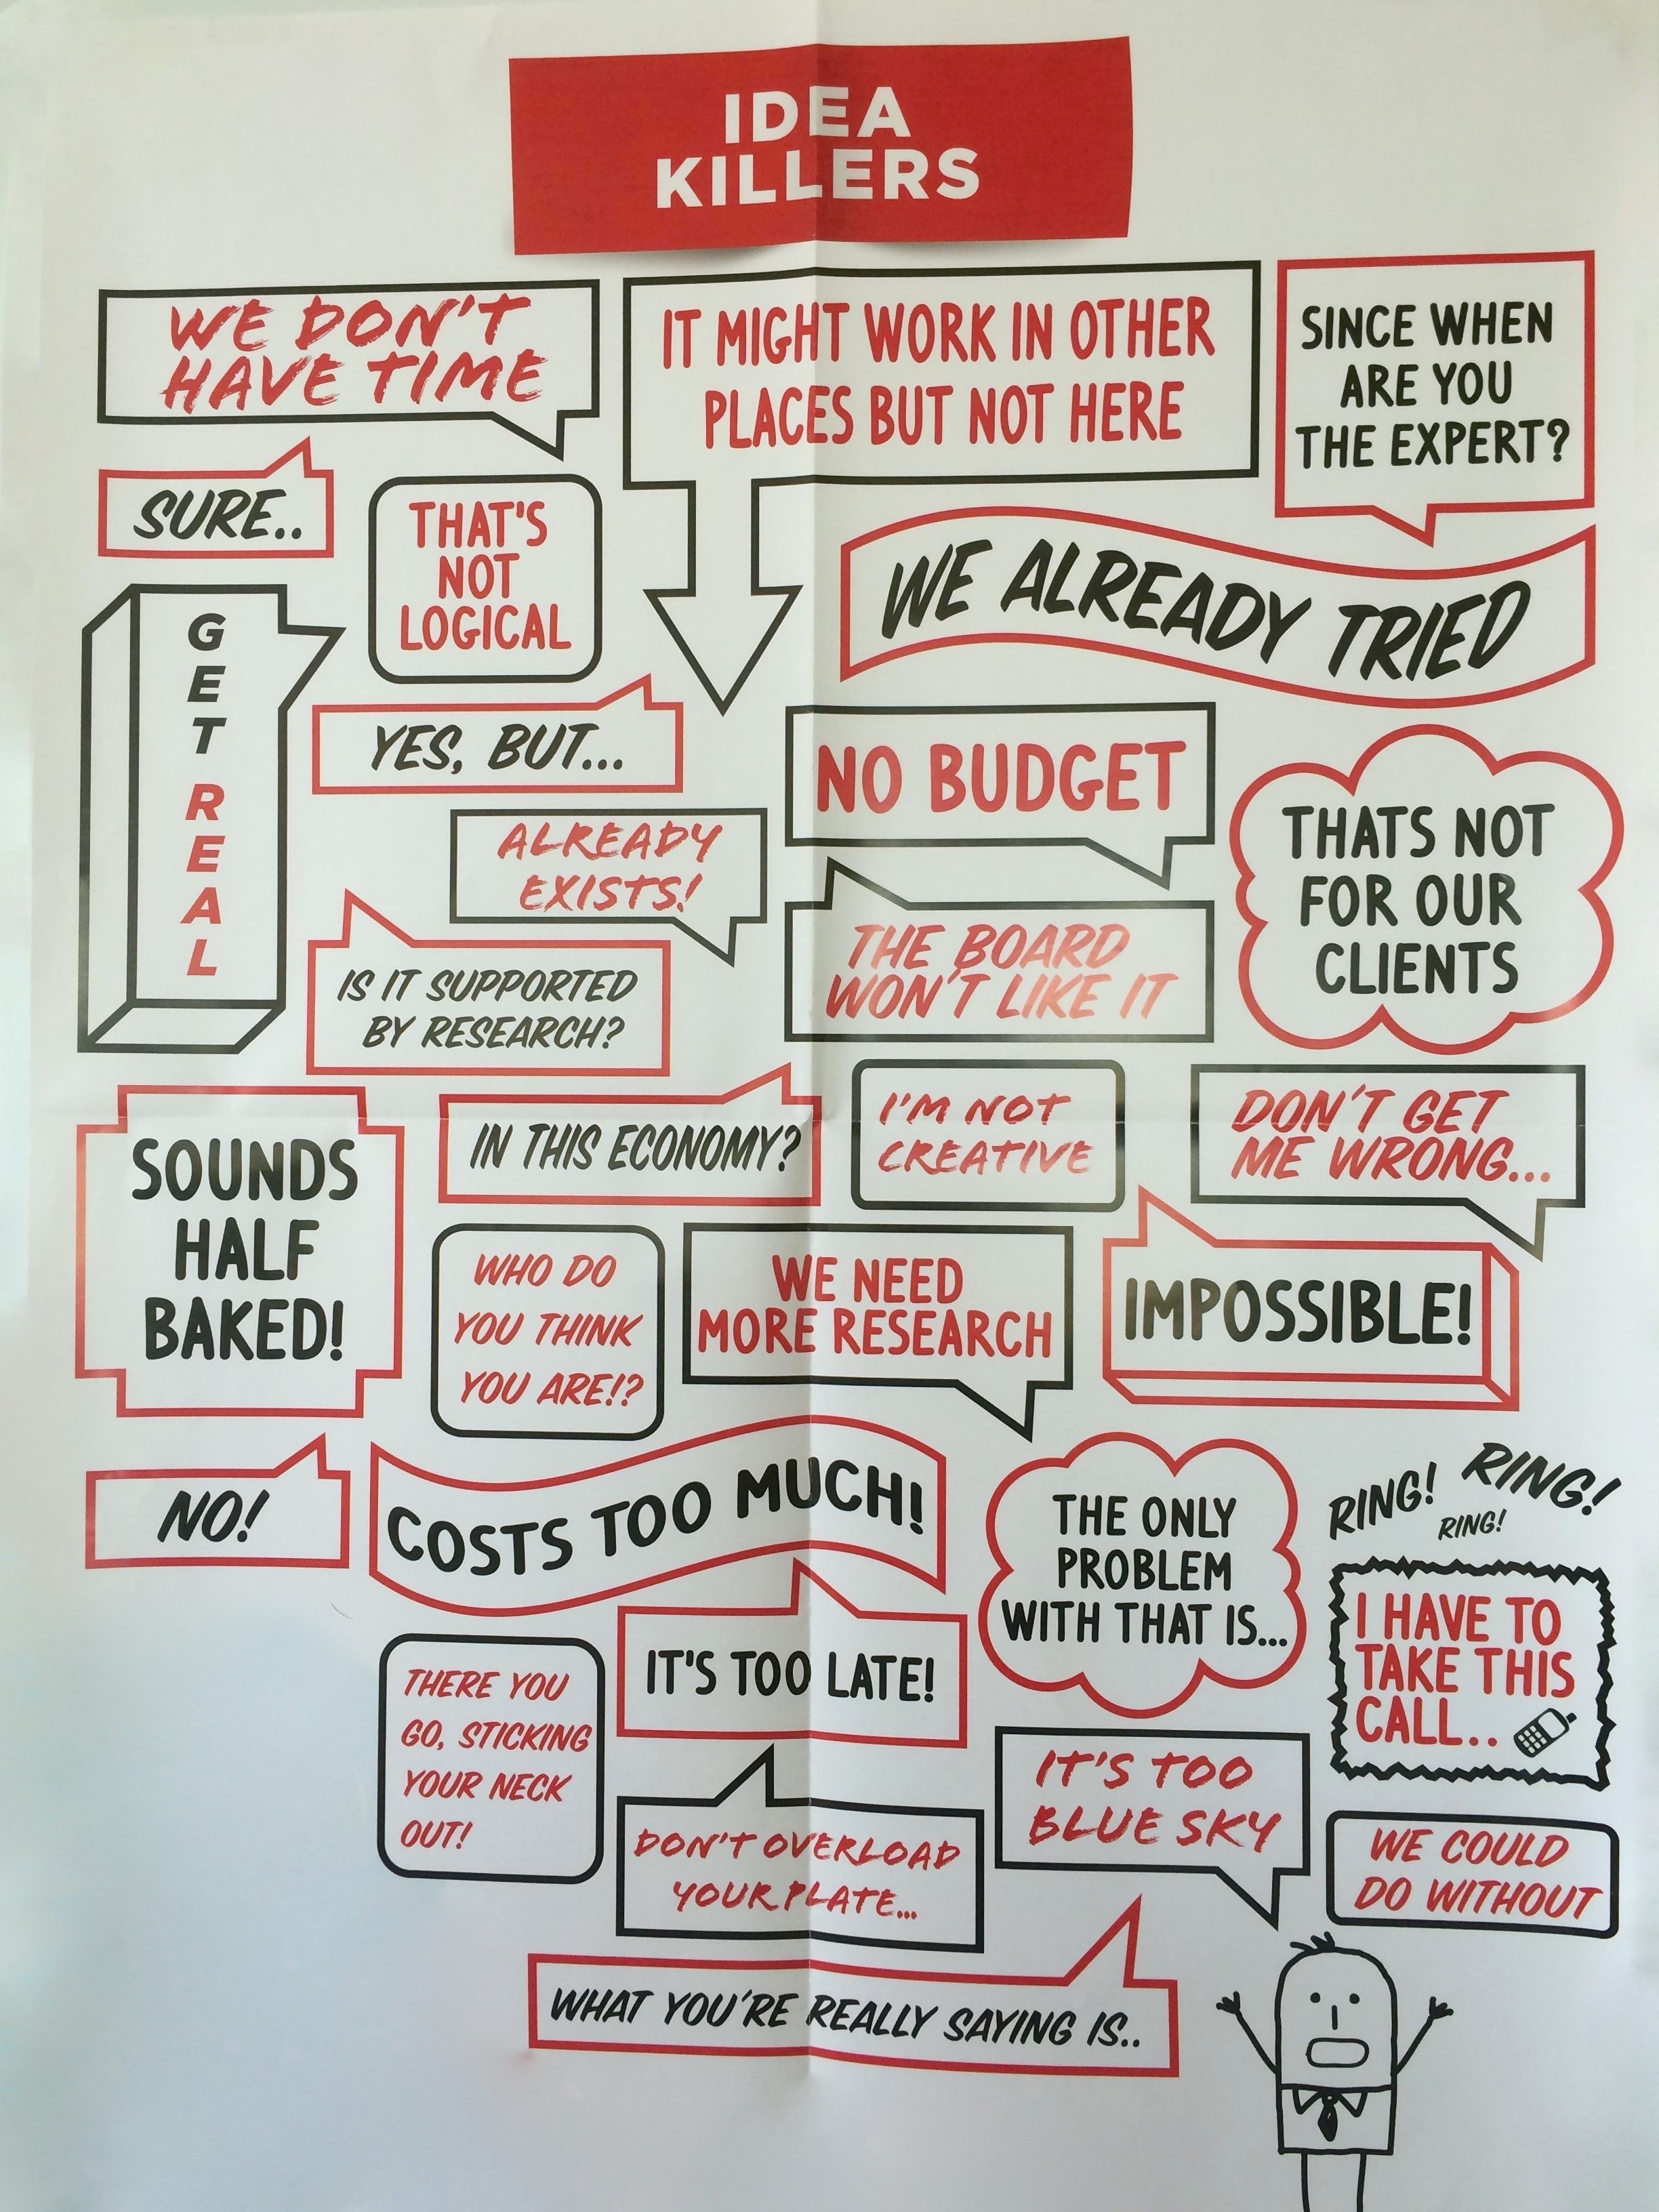 IDEA
KILLERS
WE DON'T
HAVE TIME
IT MIGHT WORK IN OTHER
PLACES BUT NOT HERE
SINCE WHEN
ARE YOU
THE EXPERT?
SURE..
THAT'S
NOT
LOGICAL
WE ALREADY TRIED
GET REAL
YES, BUT...
NO BUDGET
THATS NOT
FOR OUR
CLIENTS
ALREADY
EXISTS!
THE BOARD
WON'T LIKE IT
IS IT SUPPORTED
BY RESEARCH?
SOUNDS
HALF
BAKED!
IN THIS ECONOMY?
I'M NOT
CREATIVE
DON'T GET
ME WRONG...
WHO DO
YOU THINK
YOU ARE!?
WE NEED
MORE RESEARCH
IMPOSSIBLE!
NO!
COSTS TOO MUCH!
THE ONLY
PROBLEM
WITH THAT IS...
RING! RING!
RING!
I HAVE TO
TAKE THIS
CALL..
THERE YOU
GO, STICKING
YOUR NECK
OUT!
IT'S TOO LATE!
IT'S TOO
BLUE SKY
DON'T OVERLOAD
YOUR PLATE...
WE COULD
DO WITHOUT
WHAT YOU'RE REALLY SAYING IS..